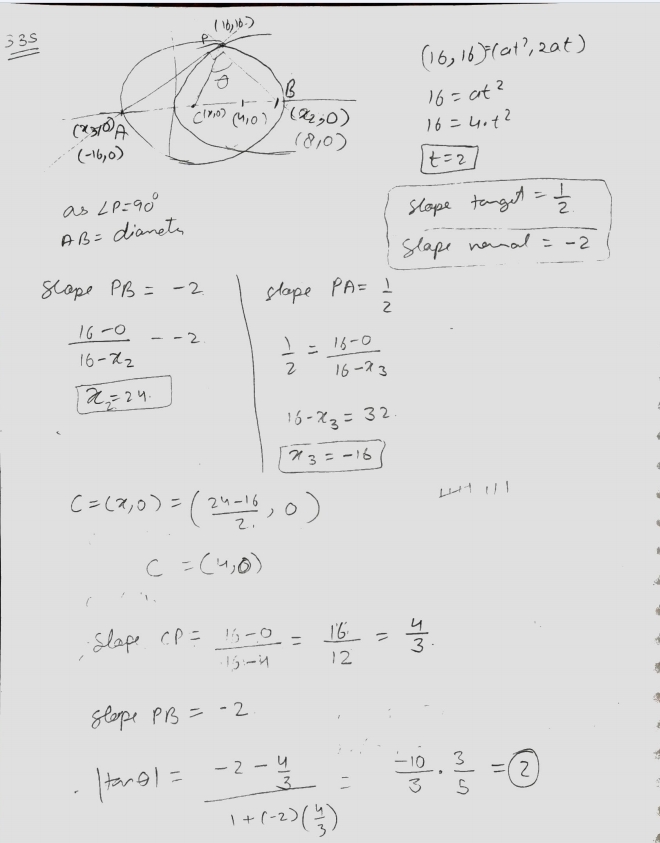 335
(16,16)
P
θ
B
C(x,0) (4,0) (x₂,0)
(8,0)
(x₃,0)A
(-16,0)
(16,16)=(at²,2at)
16=at²
16=4.t²
t=2
Slope tanget = 1/2
Slope normal = -2
as ∠P=90°
AB= diameter
Slope PB = -2
(16-0)/(16-x₂) = -2
x₂=24.
slope PA= 1/2
1/2 = (16-0)/(16-x₃)
16-x₃= 32.
x₃ = -16
C=(x,0)=((24-16)/2, 0)
C =(4,0)
Slope CP = (16-0)/(16-4) = 16/12 = 4/3.
slope PB = -2
|tanθ| = (-2-4/3)/(1+(-2)(4/3)) = -10/3 · 3/5 = 2